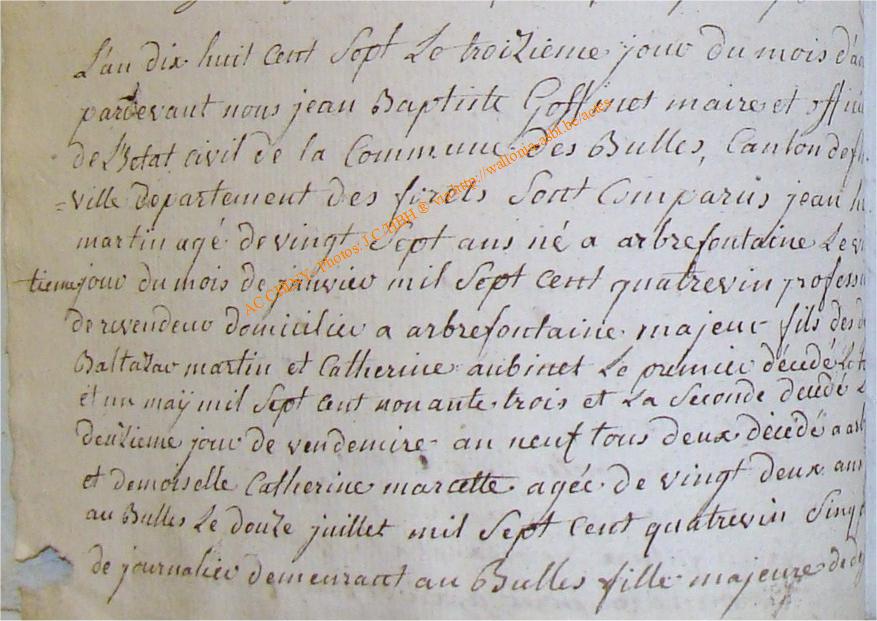 L'an dix huit cent Sept Le troizieme jour du mois d'a
pardevant nous jean Baptiste Goffinet maire et offici
de L'Etat civil de la Commune des Bulles, Canton de fl
=ville departement des forets Sont Comparus jean h
martin agé de vingt Sept ans né a arbrefontaine Le vi
tiemejour du mois de janvier mil Sept cent quatrevin profess
de revendeur domicilier a arbrefontaine majeur fils des d
Baltazar martin et Catherine aubinet Le premier décedé Le
et un maÿ mil Sept cent nonante trois et La Seconde décedé L
deuzieme jour de vendemire an neuf tous deux décedé a arb
et demoiselle Catherine marcette agée de vingt deux ans
au Bulles Le douze juillet mil Sept cent quatrevin Sinq
de journalier demeurant au Bulles fille majeure de d
AC CHINY- Photos J.C.HBH © via http://wallonia-asbl.be/actes